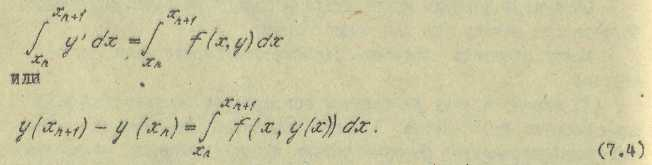 ∫_{xₙ}^{xₙ₊₁} y' dx = ∫_{xₙ}^{xₙ₊₁} f(x, y) dx
или
y(xₙ₊₁) − y(xₙ) = ∫_{xₙ}^{xₙ₊₁} f(x, y(x)) dx.
(7.4)